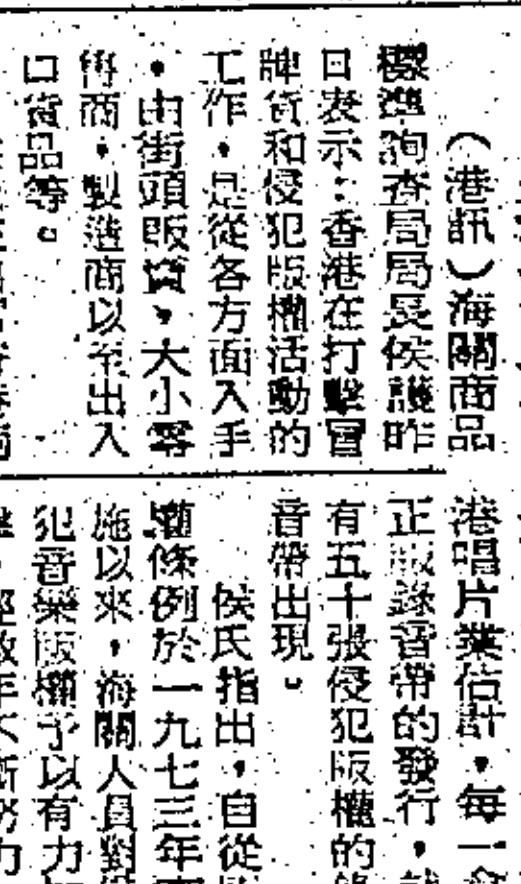 （港訊）海關商品
標準詢查局局長侯護昨
日表示：香港在打擊冒
牌貨和侵犯版權活動的
工作，是從各方面入手
，由街頭販賣，大小零
售商，製造商以至出入
口貨品等。
港唱片業估計，每一
正版錄音帶的發行，
有五十張侵犯版權的
音帶出現。
侯氏指出，自從
權條例於一九七三年
施以來，海關人員對
犯音樂版權予以有力
年不斷努力